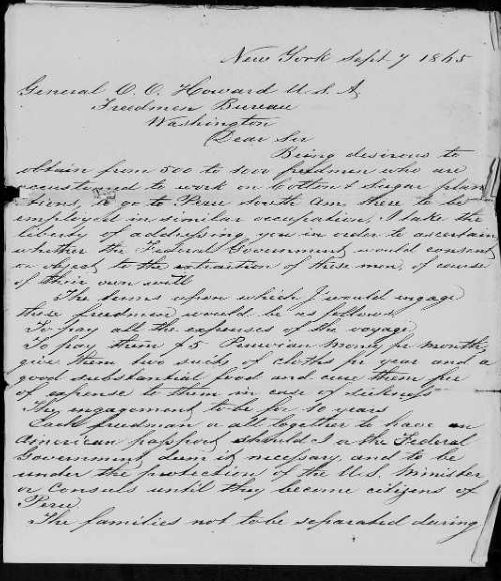 New York Sept 7 1865
General O. O. Howard U.S.A,
Freedmen Bureau
Washington
Dear Sir
Being desirous to
obtain from 500 to 1000 freedmen who are
accustomed to work on Cotton & Sugar plan
tions, to go to Peru South Am there to be
employed in similar occupation, I take the
liberty of addressing you in order to ascertain
whether the Federal Government would consent
or object to the extraction of these men, of course
of their own will
The terms upon which I would engage
these freedmen would be as follows
To pay all the expenses of the voyage
To pay them $5 Peruvian money per month,
give them two suits of cloths per year and a
good substantial food and cure them free
of expense to them in case of sickness
The engagement to be for 10 years
Each freedman or all together to have an
American passport should I or the Federal
Government deem it necessary, and to be
under the protection of the U.S. Minister
or Consuls until they become citizens of
Peru
The families not to be separated during